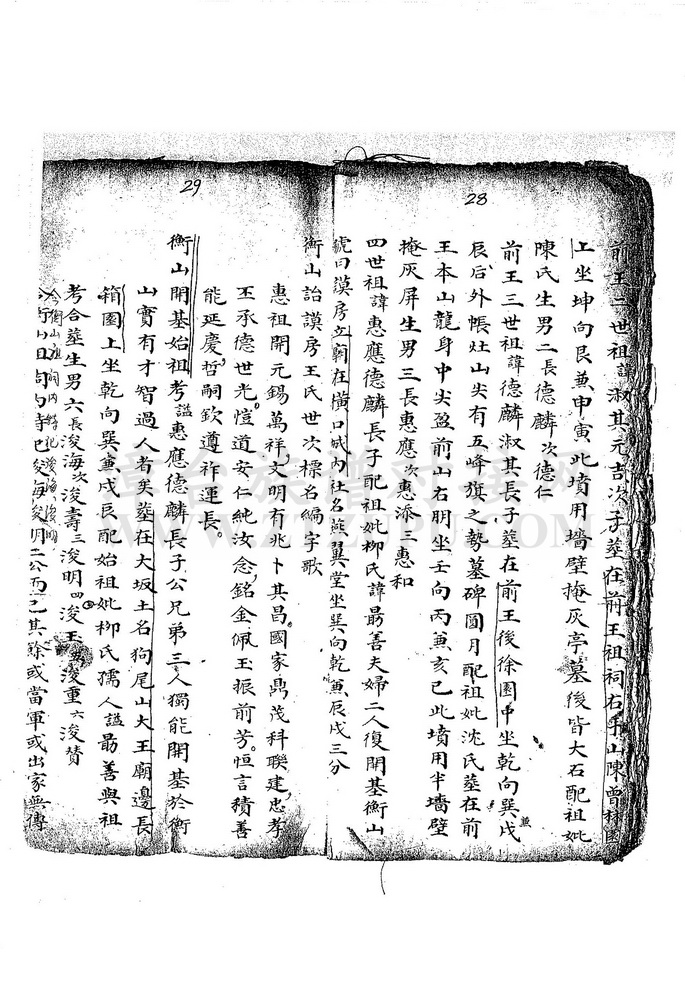 28
前王二世祖諱淑其元吉次子塟在前王祖祠右手山陳曾林園
上坐坤向艮兼申寅此墳用墻壁掩灰亭墓後皆大石配祖妣
陳氏生男二長德麟次德仁
前王三世祖諱德麟淑其長子塟在前王後徐園中坐乾向巽兼戌
辰后外帳灶山尖有五峰旗之勢墓碑圓月配祖妣沈氏塟在前
王本山龍身中尖盈前山右朋坐壬向丙兼亥己此墳用半墻壁
掩灰屏生男三長惠應次惠添三惠和
四世祖諱惠應德麟長子配祖妣柳氏諱最善夫婦二人復開基衡山
號曰謨房立廟在橫口城內社名燕翼堂坐巽向乾兼辰戌三分
29
衡山詒謨房王氏世次標名編字歌
惠祖開元錫萬祥文明有兆卜其昌。國家鼎茂科聯建忠孝
丕承德世光。愷道安仁純汝念銘金佩玉振前芳。恒言積善
能延慶哲嗣欽遵祚運長。
衡山開基始祖考諡惠應德麟長子公兄弟三人獨能開基於衡
山實有才智過人者矣塟在大坂土名狗尾山大王廟邊長
箱園上坐乾向巽兼戌辰配始祖妣柳氏孺人諡最善與祖
考合塟生男六長浚海次浚壽三浚明四浚玉五浚重六浚賛
今衡山祖祠內
浚海浚明二公而已其餘或當軍或出家無傳
漳台族譜對接網